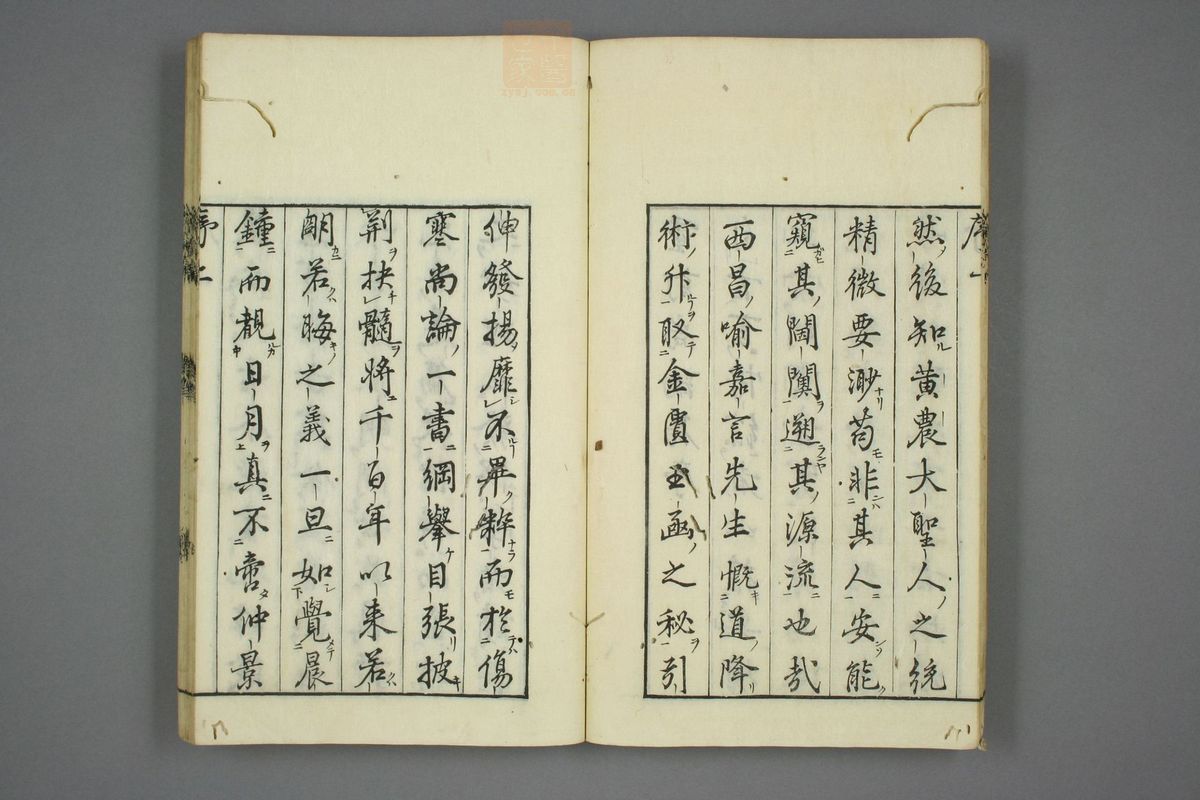 序一
然後知黄農大聖人之統
精微要渺苟非其人安能
窺其閫闑遡其源流也哉
西昌喻嘉言先生慨道降
術升取金匱玉函之秘引
伸發揚靡不畢粹而於傷
寒尚論一書綱舉目張披
荆抉髓将千百年以来若
明若晦之義一旦如覺晨
鐘而覩日月真不啻仲景
序二